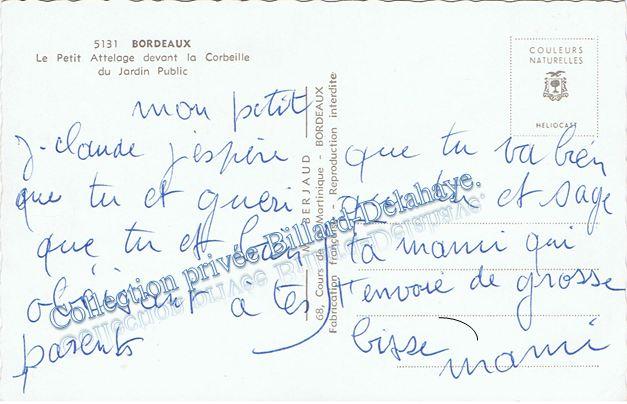 5131 BORDEAUX
Le Petit Attelage devant la Corbeille
du Jardin Public
mon petit
J-claude j'espère
que tu et gueri
que tu et bien
obéissent à tes
parents
que tu va bien
que tu et sage
ta mami qui
t'envoie de grosse
bisse
mami
BERJAUD
68, Cours de la Martinique - BORDEAUX
Fabrication française - Reproduction interdite
COULEURS
NATURELLES
HELIOCAST
Collection privée Billard-Delahaye.